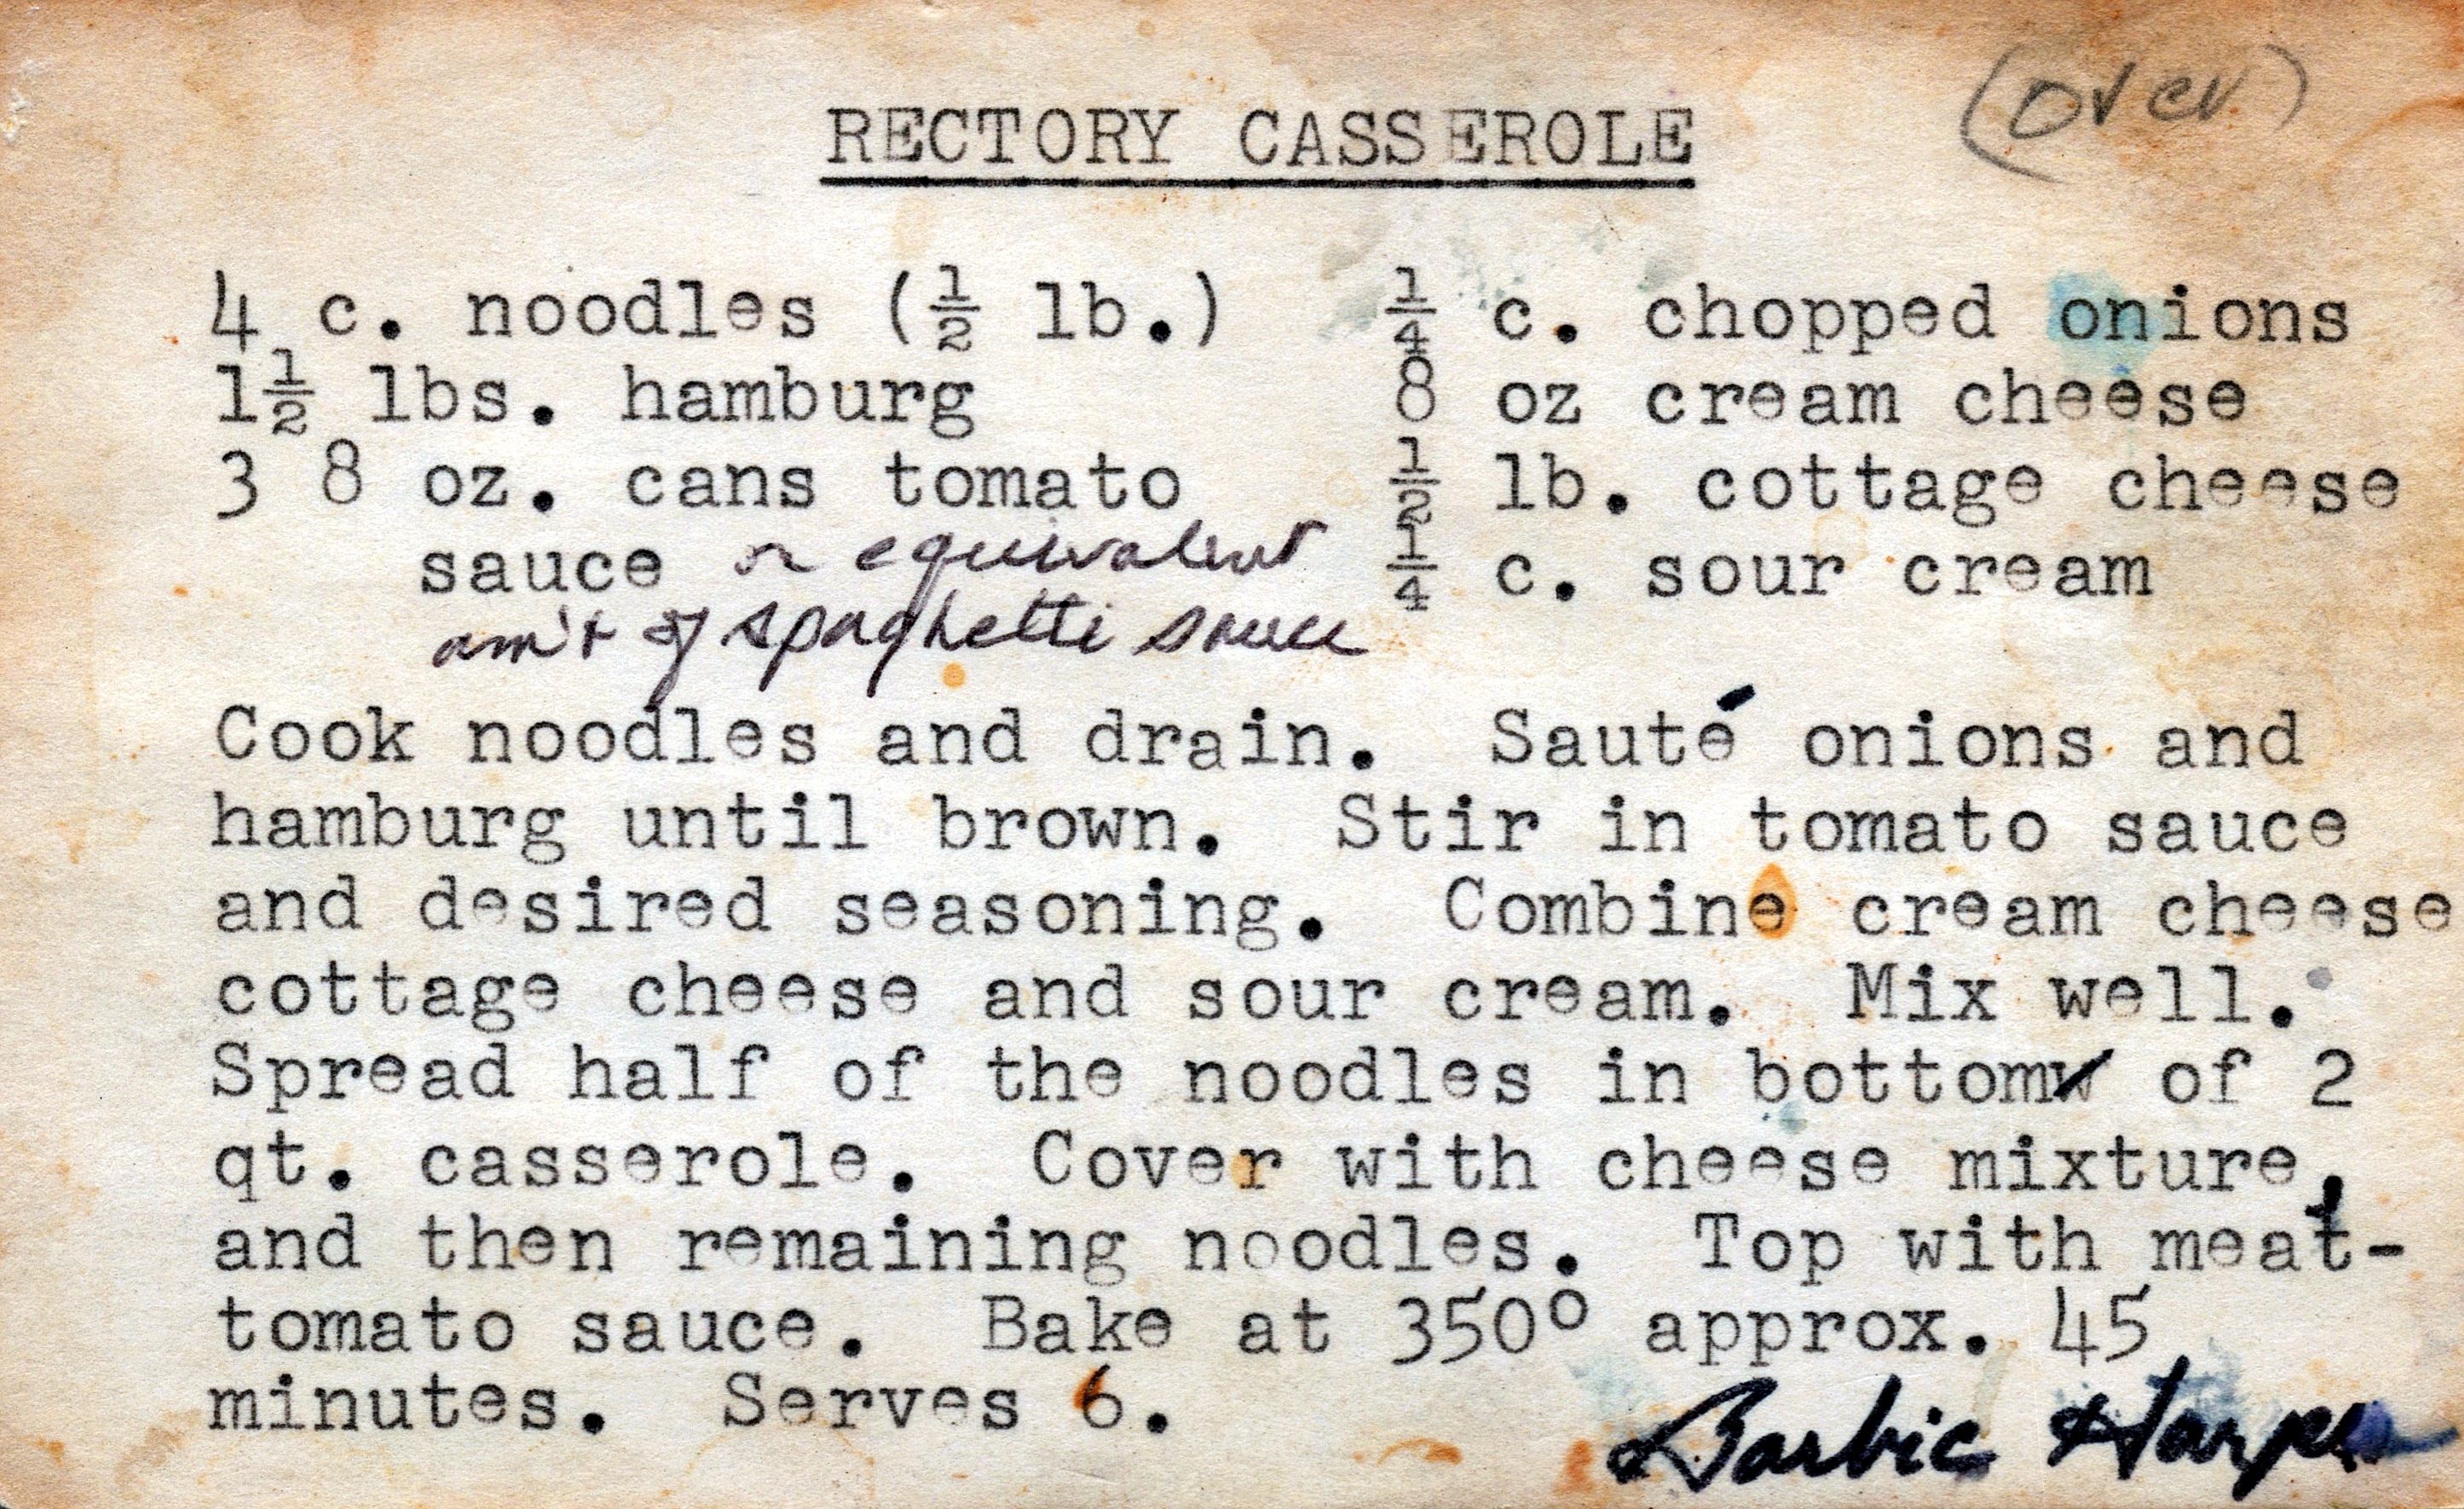 (over)
RECTORY CASSEROLE
4 c. noodles (½ lb.)
1½ lbs. hamburg
3 8 oz. cans tomato
sauce or equivalent
am't of spaghetti sauce
¼ c. chopped onions
8 oz cream cheese
½ lb. cottage cheese
¼ c. sour cream
Cook noodles and drain. Sauté onions and
hamburg until brown. Stir in tomato sauce
and desired seasoning. Combine cream cheese
cottage cheese and sour cream. Mix well.
Spread half of the noodles in bottom of 2
qt. casserole. Cover with cheese mixture,
and then remaining noodles. Top with meat-
tomato sauce. Bake at 350° approx. 45
minutes. Serves 6.
Barbie Harper